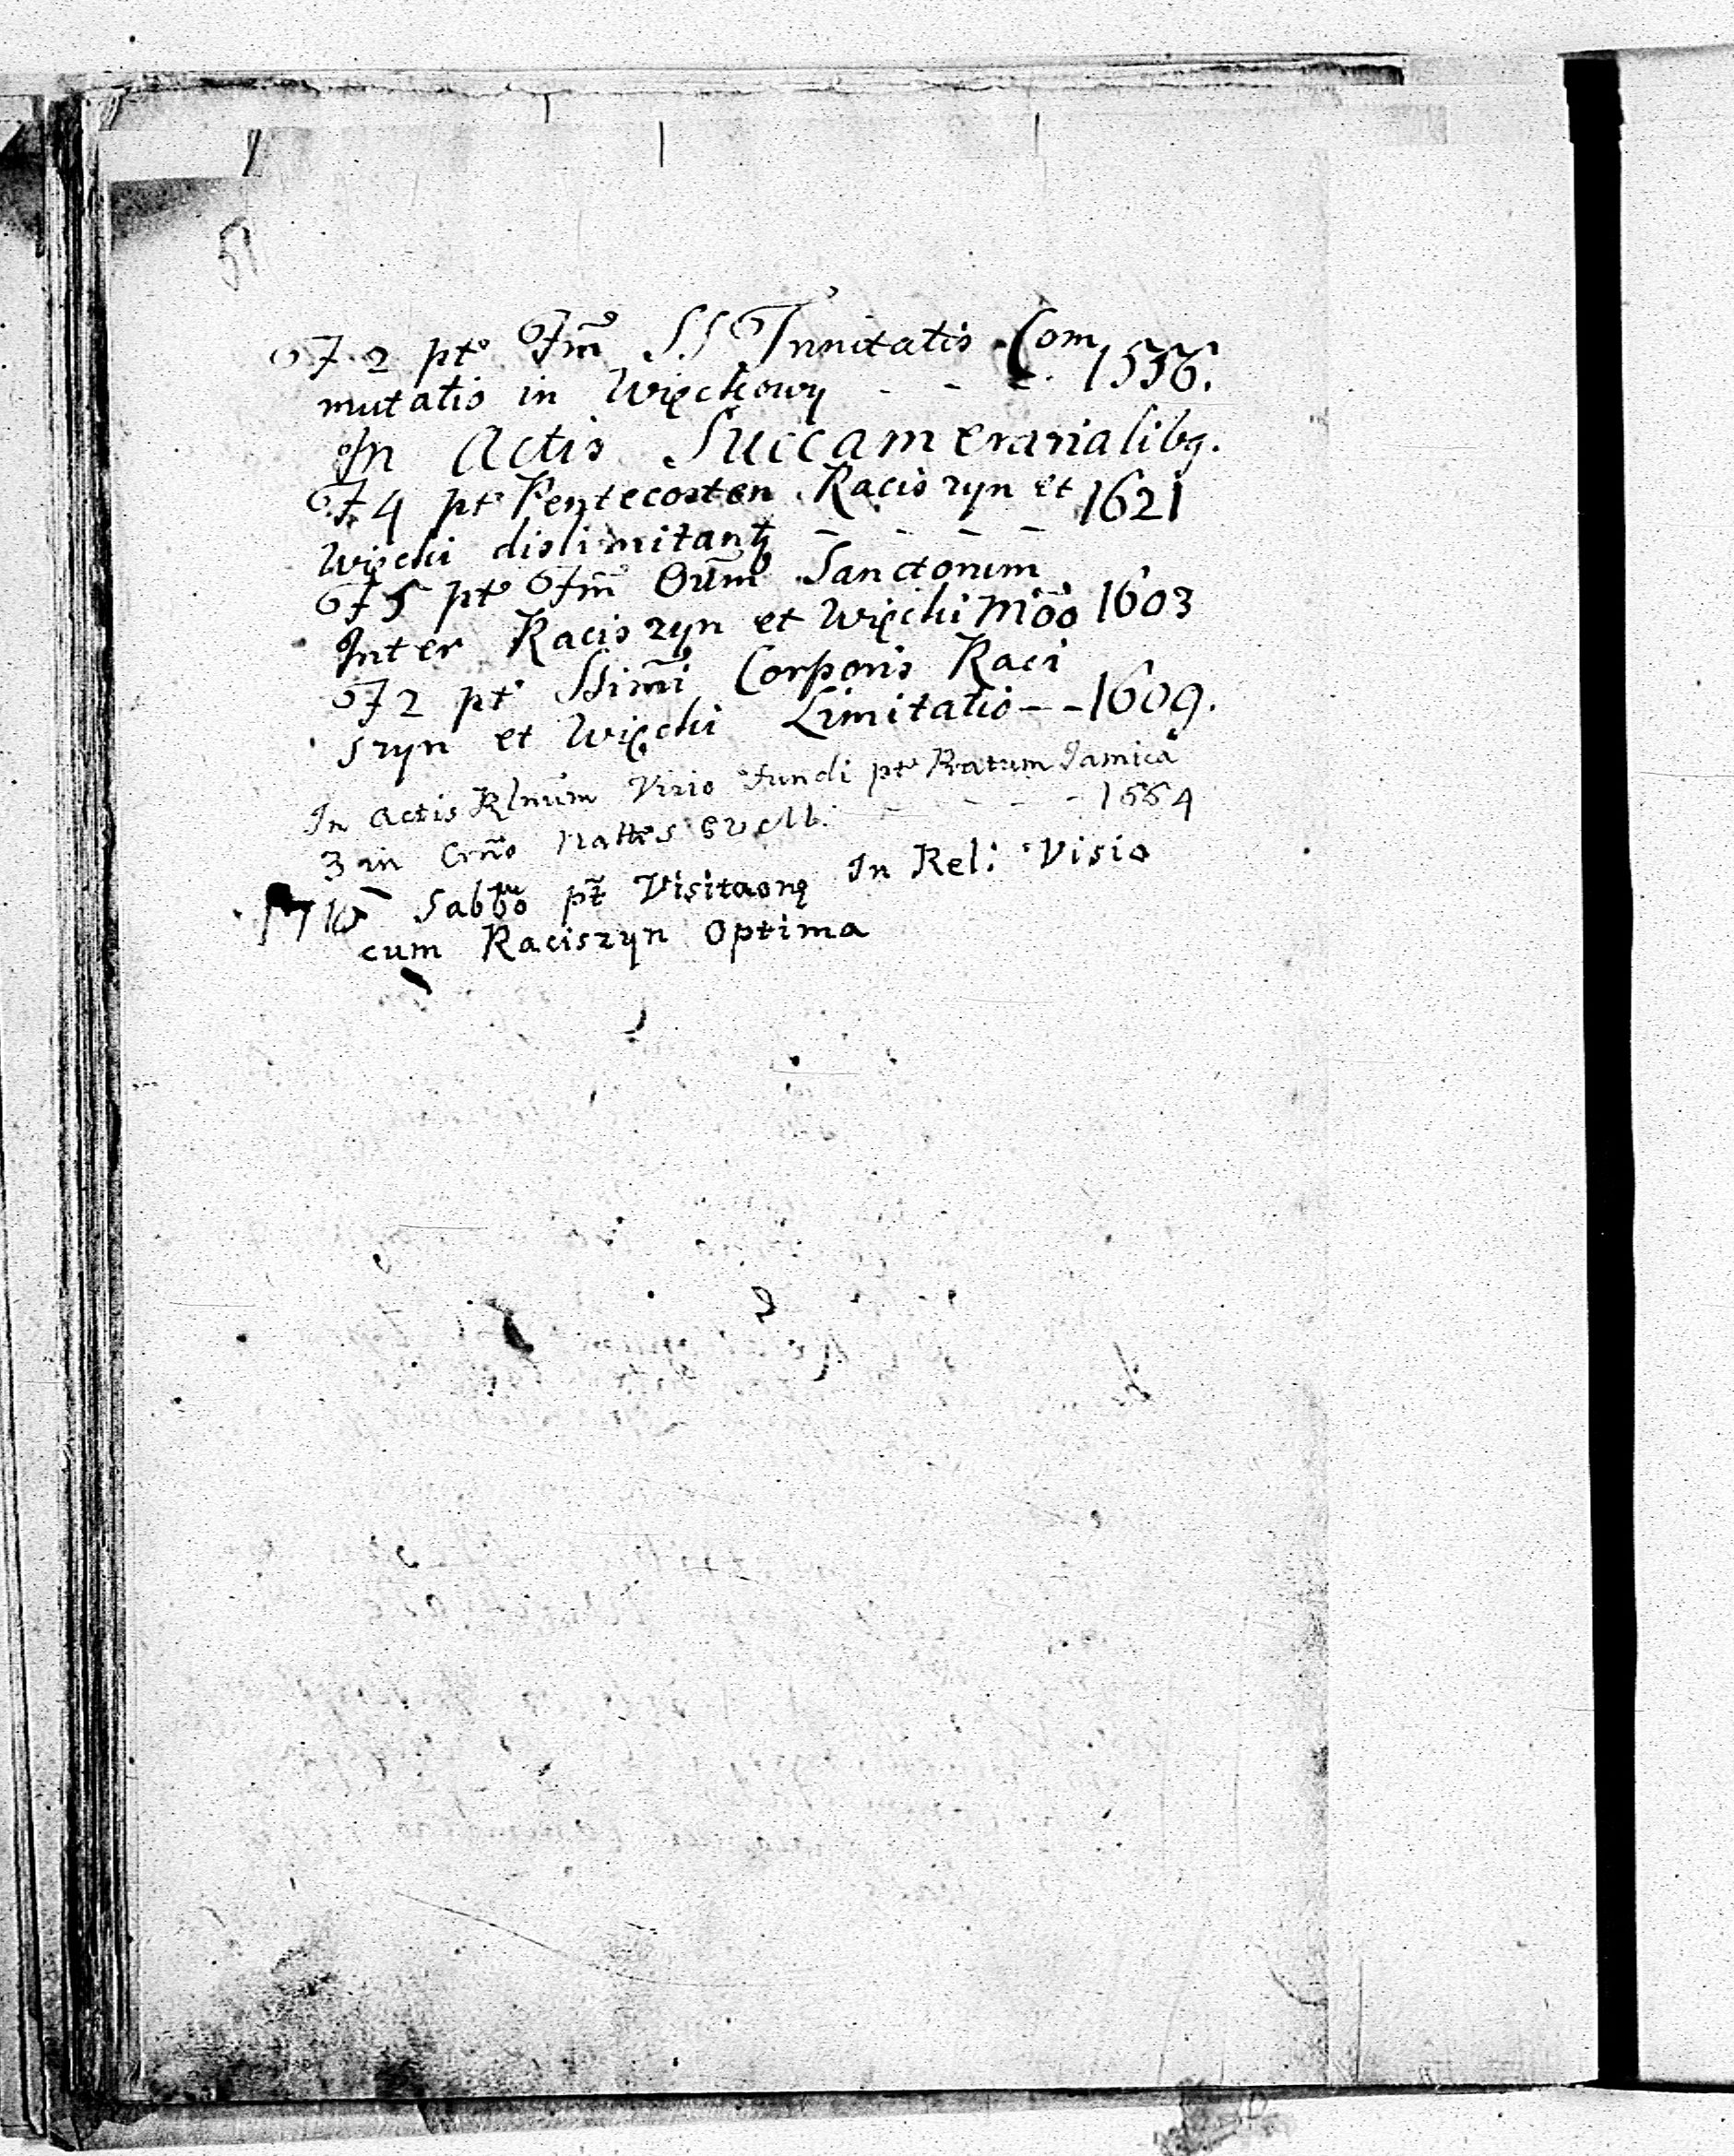 51
F. 2 pt° Fm̃ S.S Trinitatis Com
mutatio in Więchowy - - - . 1556.
In Actis Succamerarialibq.
F. 4 pt° Pentecosten Raciszyn et 1621
Więchi dislimitantʒ - - - -
F 5 pt° Fm̃ Oūm Sanctorum
Inter Raciszyn et Więchi Mõo 1603
F 2 pt° SSimi Corporis Raci
szyn et Więchi Limitatio - - 1609.
In Actis Rlnūm Visio fundi pt° Pratum Jamica
3 in Crñō - - - - 1554
1716 Sabbo pt̃ Visitaonę In Rel: Visio
cum Raciszyn Optima